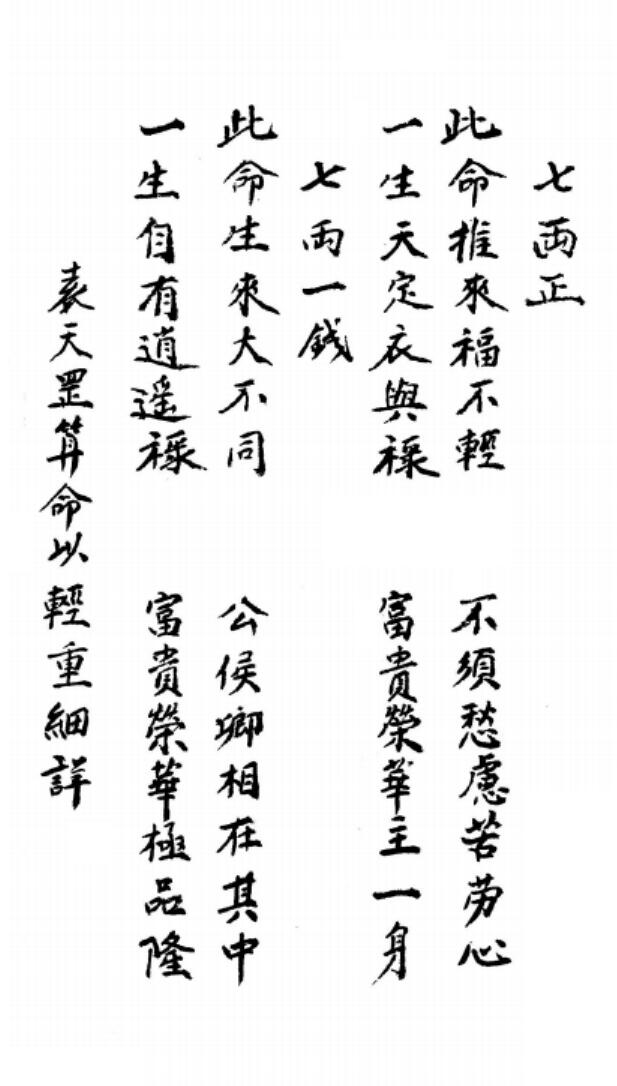 七両正
此命推來福不輕　不須愁慮苦劳心
一生天定衣與祿　富貴榮華主一身
七両一錢
此命生來大不同　公侯卿相在其中
一生自有逍遥祿　富貴榮華極品隆
袁天罡算命以輕重細詳